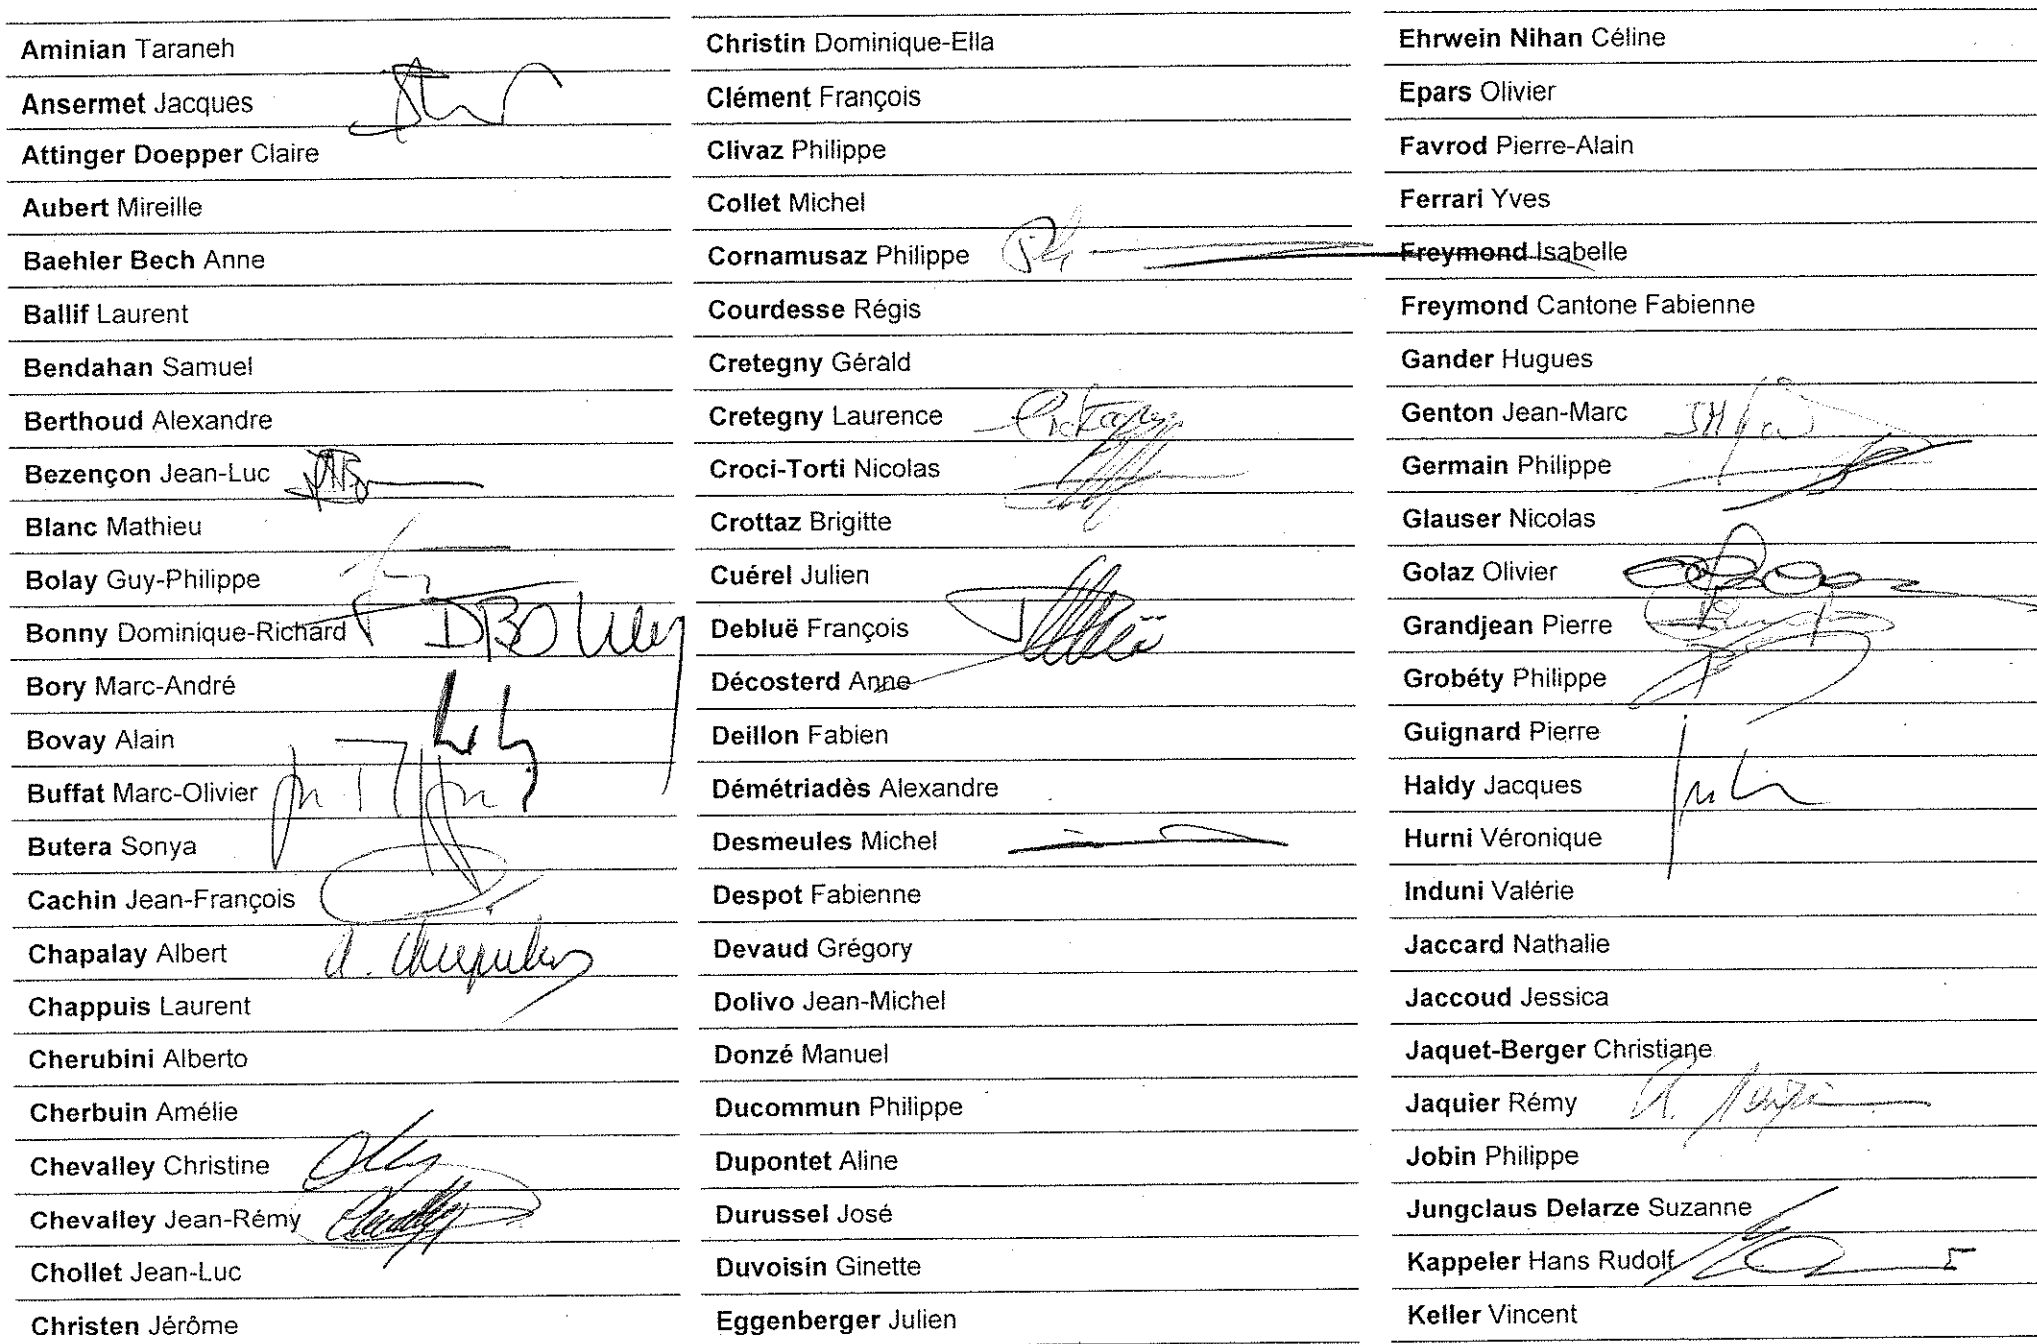 Aminian Taraneh
Ansermet Jacques
Attinger Doepper Claire
Aubert Mireille
Baehler Bech Anne
Ballif Laurent
Bendahan Samuel
Berthoud Alexandre
Bezençon Jean-Luc
Blanc Mathieu
Bolay Guy-Philippe
Bonny Dominique-Richard
Bory Marc-André
Bovay Alain
Buffat Marc-Olivier
Butera Sonya
Cachin Jean-François
Chapalay Albert
Chappuis Laurent
Cherubini Alberto
Cherbuin Amélie
Chevalley Christine
Chevalley Jean-Rémy
Chollet Jean-Luc
Christen Jérôme
Christin Dominique-Ella
Clément François
Clivaz Philippe
Collet Michel
Cornamusaz Philippe
Courdesse Régis
Cretegny Gérald
Cretegny Laurence
Croci-Torti Nicolas
Crottaz Brigitte
Cuérel Julien
Debluë François
Décosterd Anne
Deillon Fabien
Démétriadès Alexandre
Desmeules Michel
Despot Fabienne
Devaud Grégory
Dolivo Jean-Michel
Donzé Manuel
Ducommun Philippe
Dupontet Aline
Durussel José
Duvoisin Ginette
Eggenberger Julien
Ehrwein Nihan Céline
Epars Olivier
Favrod Pierre-Alain
Ferrari Yves
Freymond Isabelle
Freymond Cantone Fabienne
Gander Hugues
Genton Jean-Marc
Germain Philippe
Glauser Nicolas
Golaz Olivier
Grandjean Pierre
Grobéty Philippe
Guignard Pierre
Haldy Jacques
Hurni Véronique
Induni Valérie
Jaccard Nathalie
Jaccoud Jessica
Jaquet-Berger Christiane
Jaquier Rémy
Jobin Philippe
Jungclaus Delarze Suzanne
Kappeler Hans Rudolf
Keller Vincent